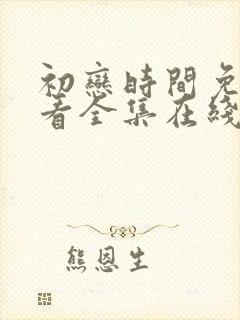 初戀時間免
看全集在綫
熊恩生